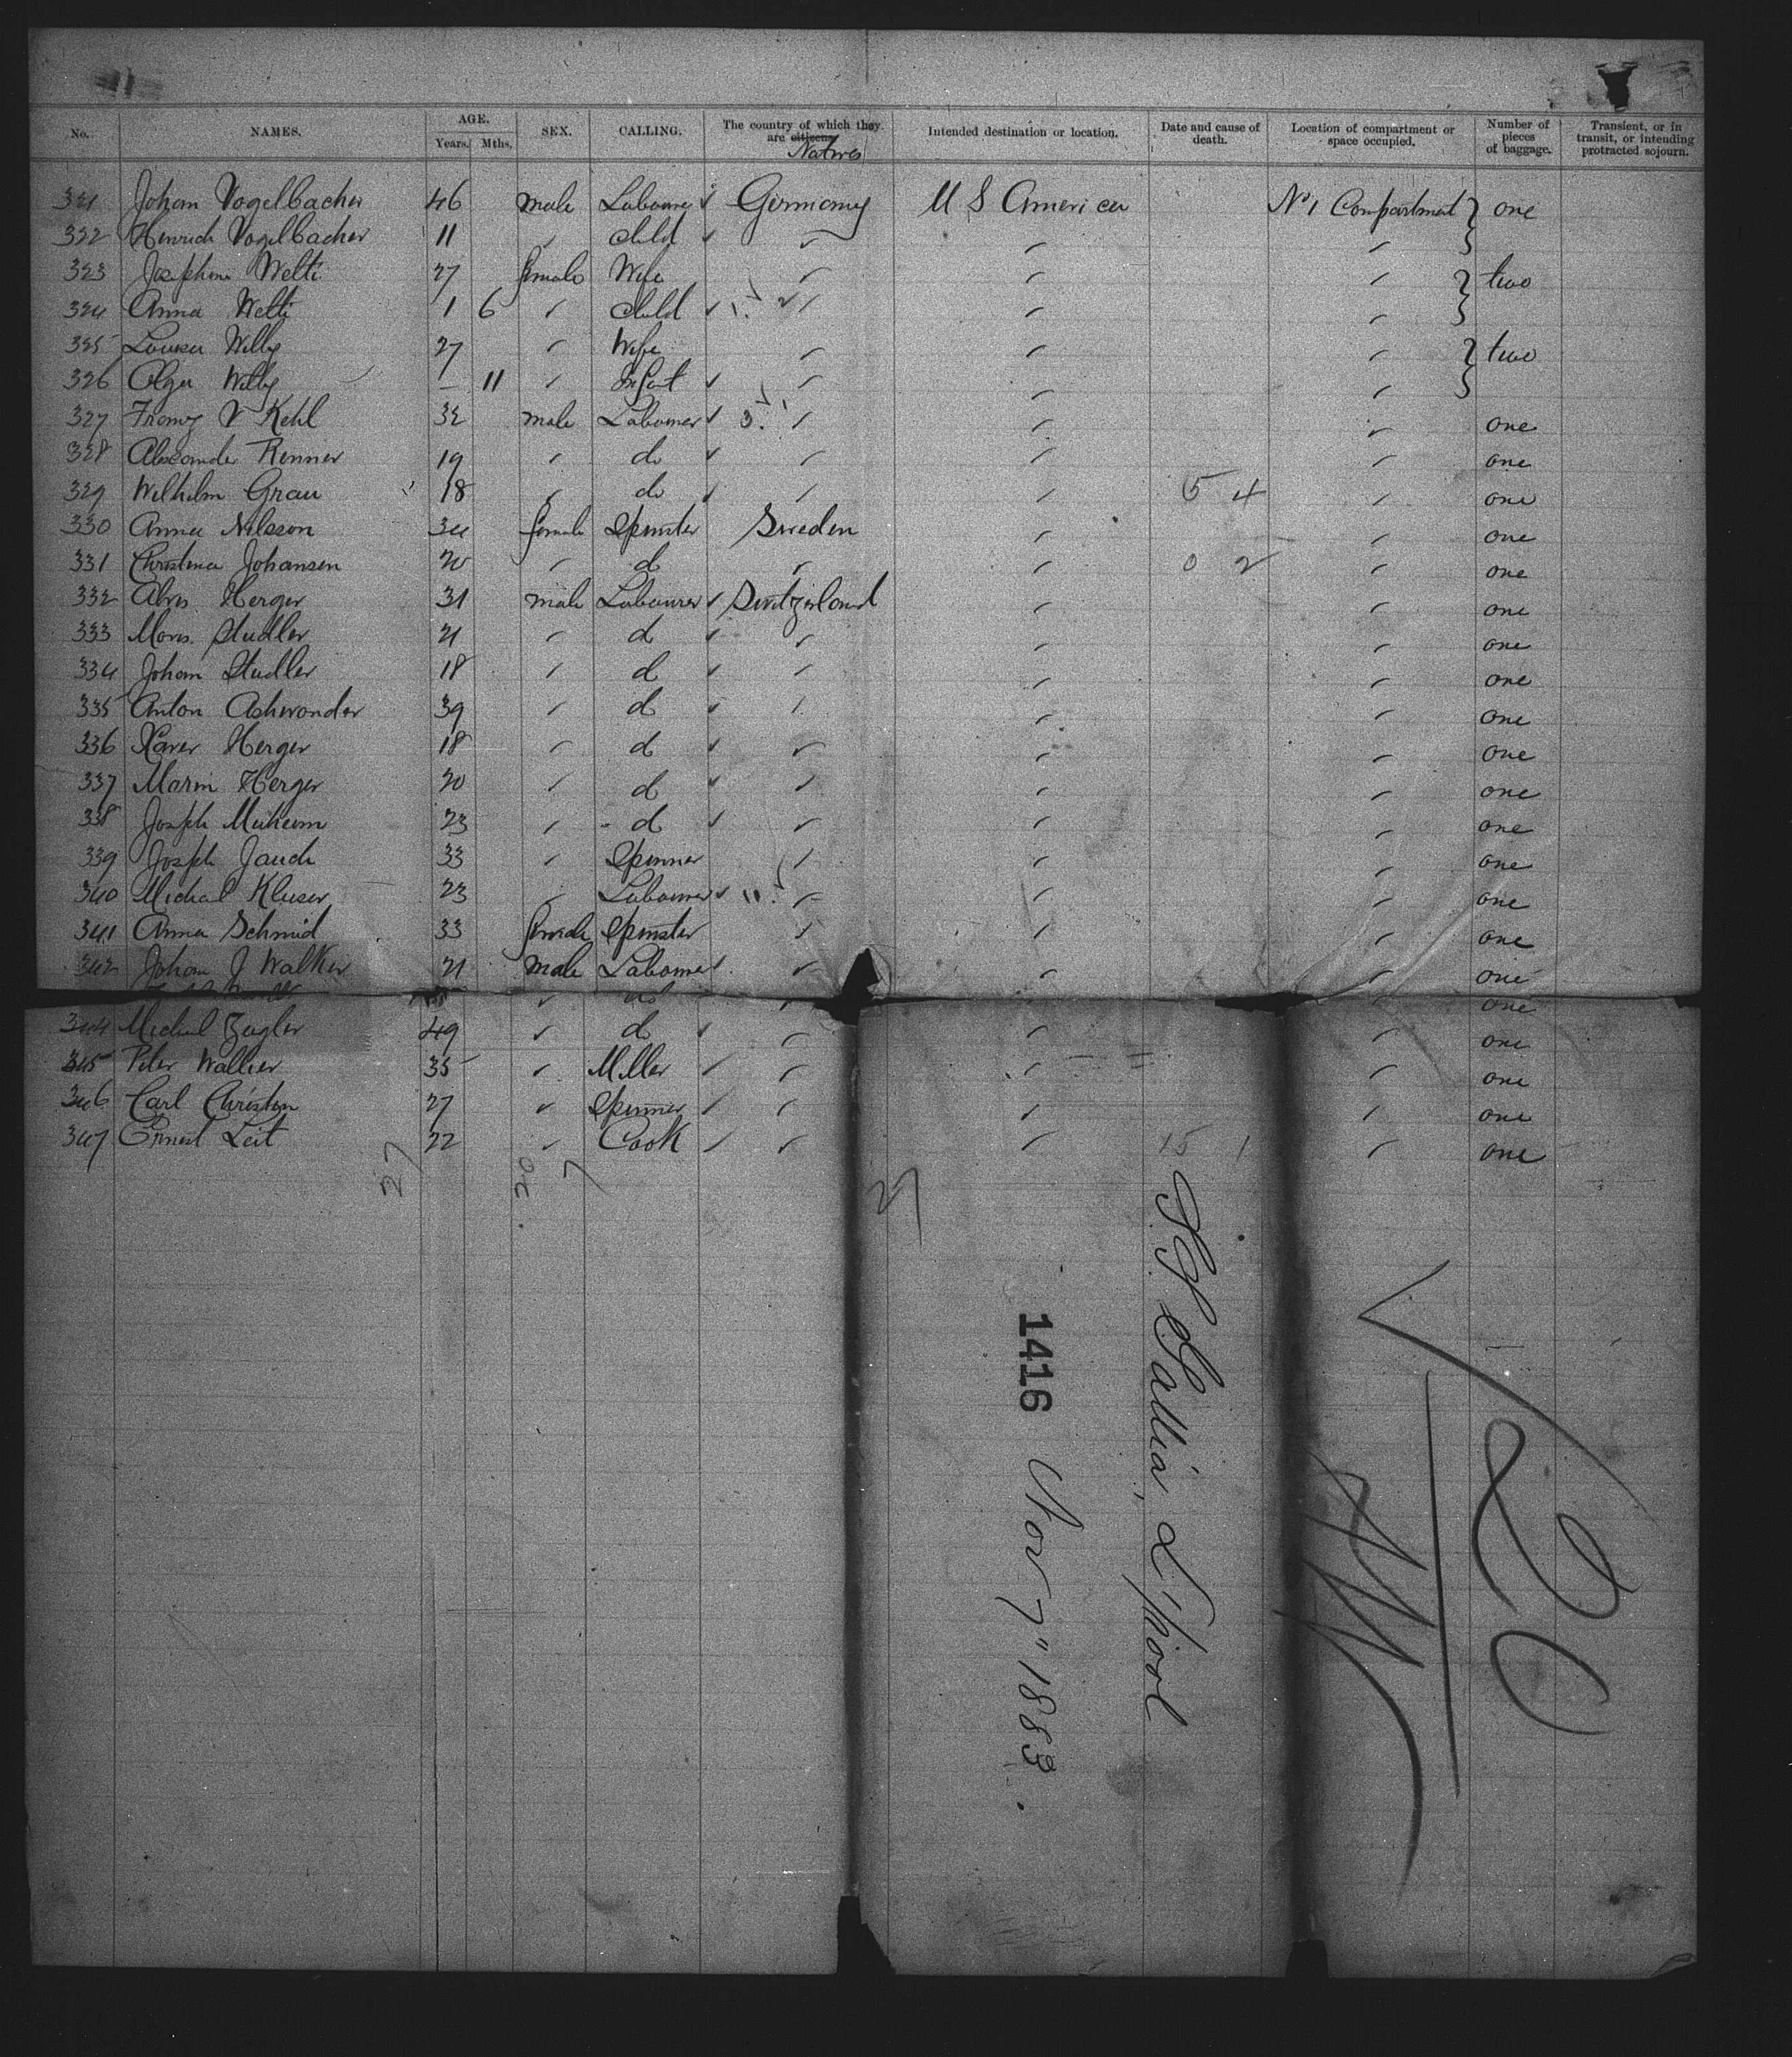 No. NAMES. AGE. Years. Mths. SEX. CALLING. The country of which they are citizens Natives Intended destination or location. Date and cause of death. Location of compartment or space occupied. Number of pieces of baggage. Transient, or in transit, or intending protracted sojourn.
321 Johan Vogelbacher 46 male Labourer Germany U S America No 1 Compartment one
322 Heinrich Vogelbacher 11 " child " " "
323 Josephine Welti 27 female Wife " " " two
324 Anna Welti 1 6 " child " " "
325 Louisa Willy 27 " Wife " " " two
326 Olga Willy - 11 " Infant " " "
327 Franz V Kehl 32 male Labourer 3 " " " one
328 Alexander Renner 19 " do " " " one
329 Wilhelm Grau 18 " do " " 5 4 " one
330 Anna Nilsson 34 female Spinster Sweden " " one
331 Christina Johansen 20 " d " " 0 2 " one
332 Alois Herger 31 male Labourer Switzerland " " one
333 Studler 21 " d " " " one
334 Johan Studler 18 " d " " " one
335 Anton Ashwonder 39 " d " " " one
336 Xaver Herger 18 " d " " " one
337 Marin Herger 20 " d " " " one
338 Joseph Muheim 23 " d " " " one
339 Joseph Jauch 33 " Spinner " " " one
340 Michael Kluser 23 " Labourer 11 " " " one
341 Anna Schmid 33 female Spinster " " " one
342 Johan J Walker 21 male Labourer " " " one
" do " one
344 Michael Zugler 49 " d " " " one
345 Peter Wallier 35 " Miller " " " one
346 Carl Christen 27 " Spinner " " " one
347 Ernest Leit 22 " Cook " " 15 1 " one
27 20 7 27
SS Gallia, L'pool
1416 Nov 7" 1883.